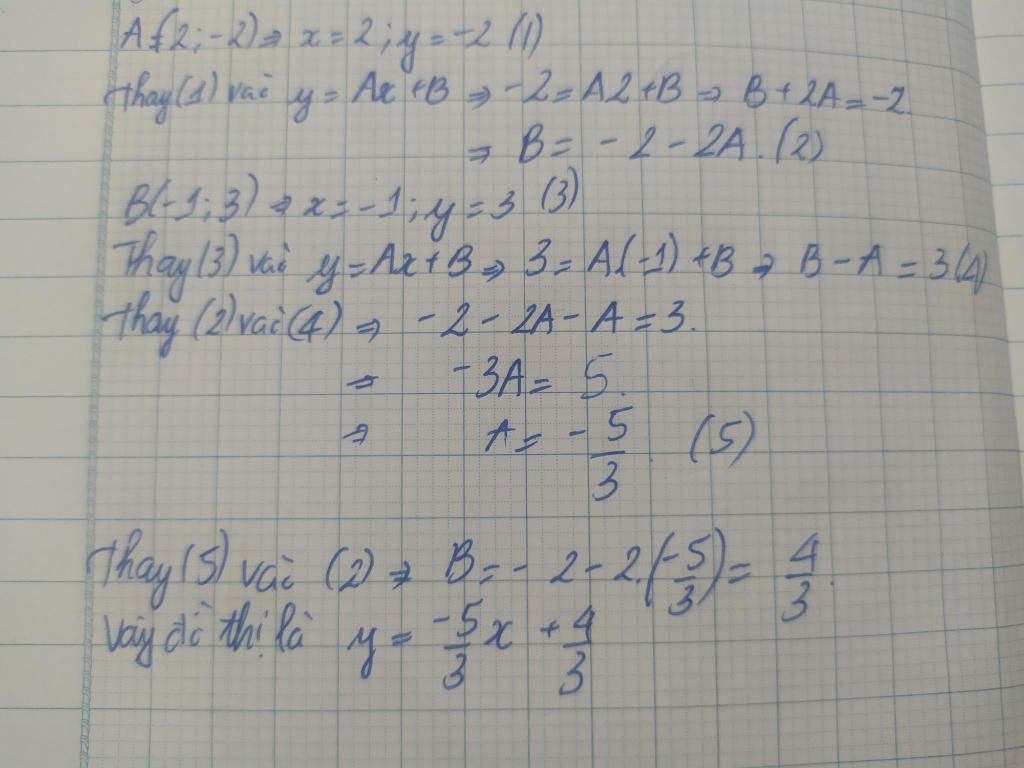 A(2; -2) => x = 2; y = -2 (1)
Thay (1) vào y = Ax + B => -2 = A2 + B => B + 2A = -2.
=> B = - 2 - 2A. (2)
B(-1; 3) => x = -1; y = 3 (3)
Thay (3) vào y = Ax + B => 3 = A(-1) + B => B - A = 3 (4)
Thay (2) vào (4) => - 2 - 2A - A = 3.
=> -3A = 5.
=> A = - 5/3. (5)
Thay (5) vào (2) => B = - 2 - 2.(-5/3) = 4/3.
Vậy đồ thị là y = -5/3 x + 4/3